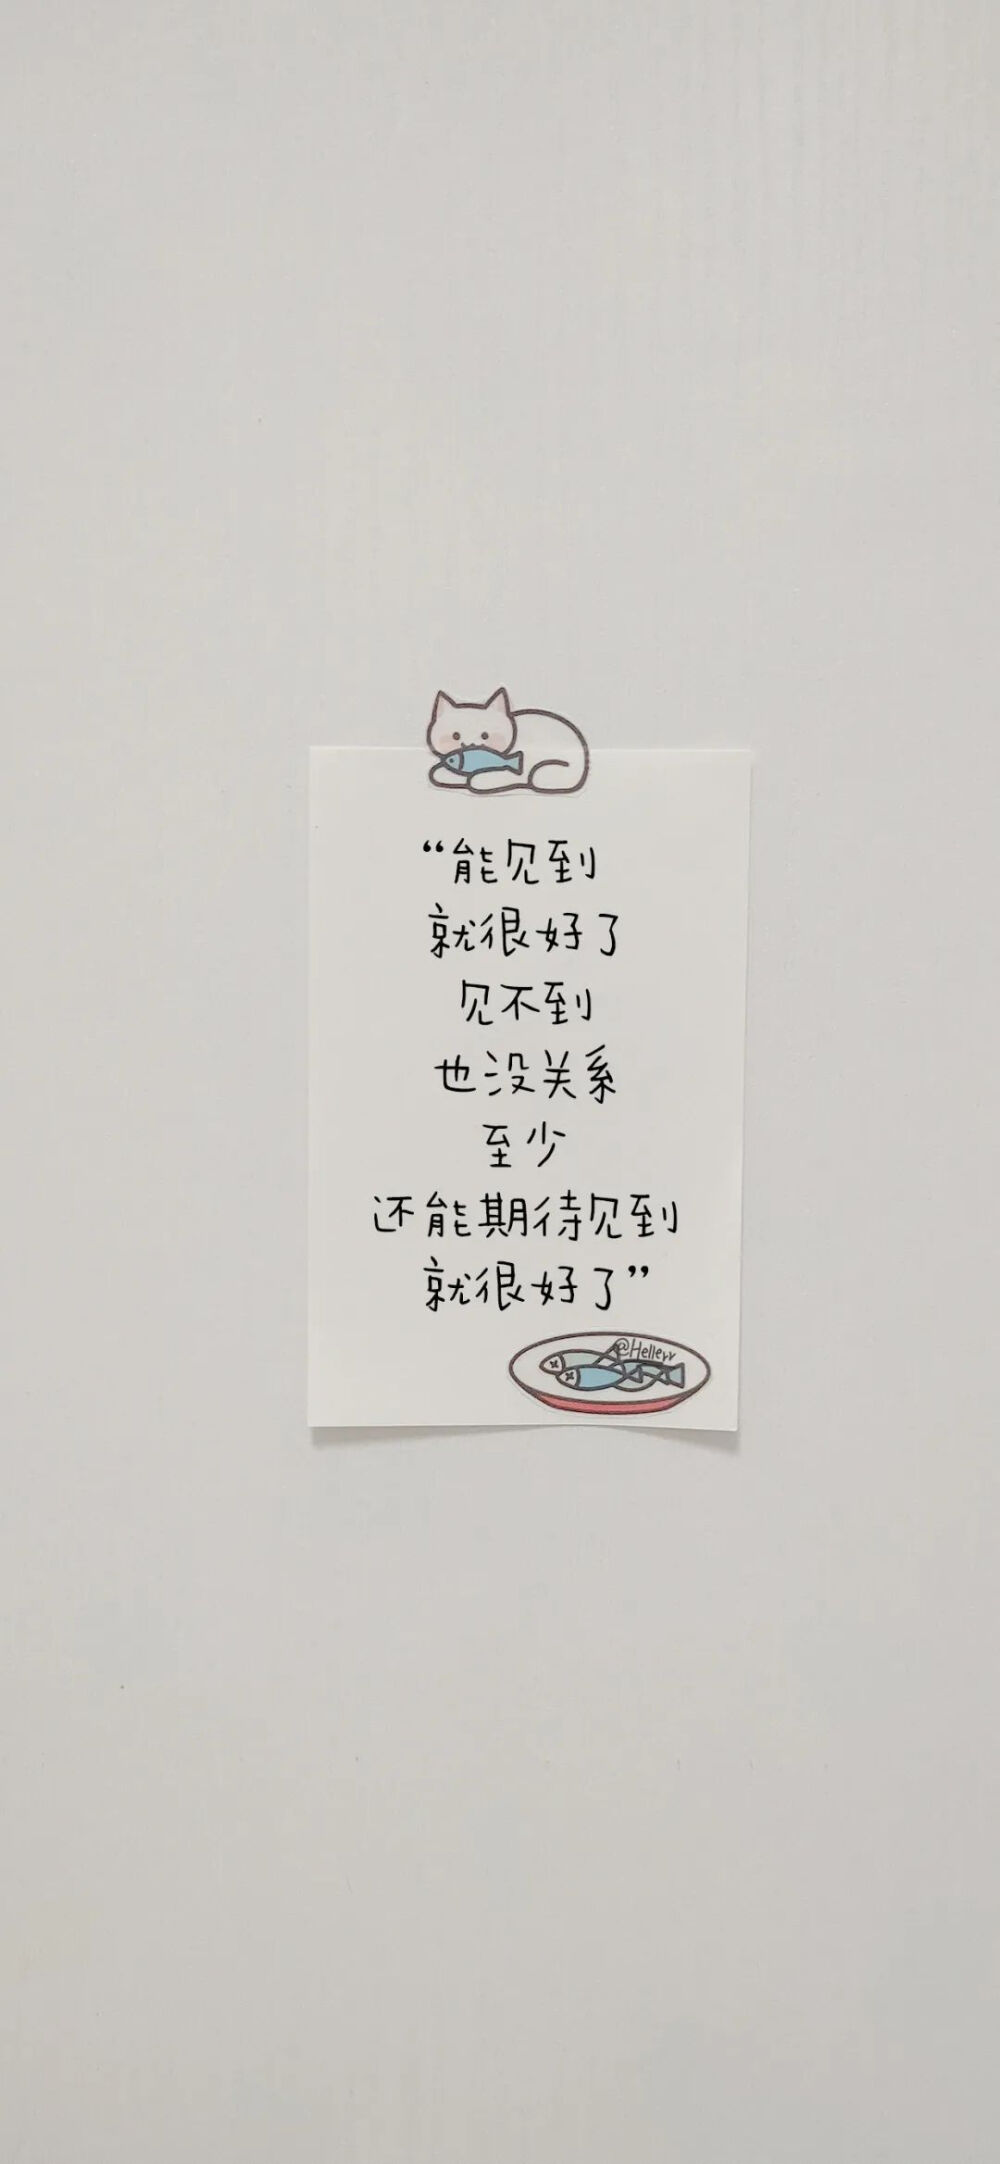 “能见到
就很好了
见不到
也没关系
至少
还能期待见到
就很好了”
@Helleyy